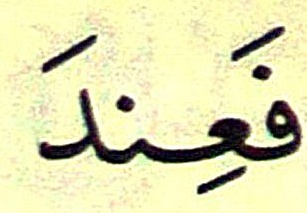 فَعِندَ